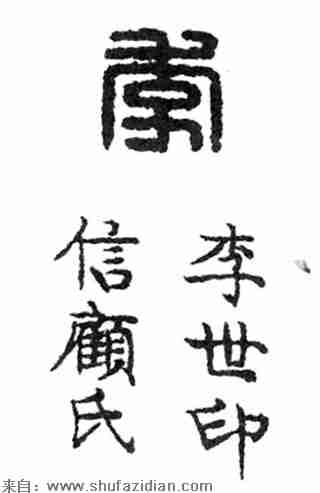 李
李世印
信顧氏
来自：www.shufazidian.com